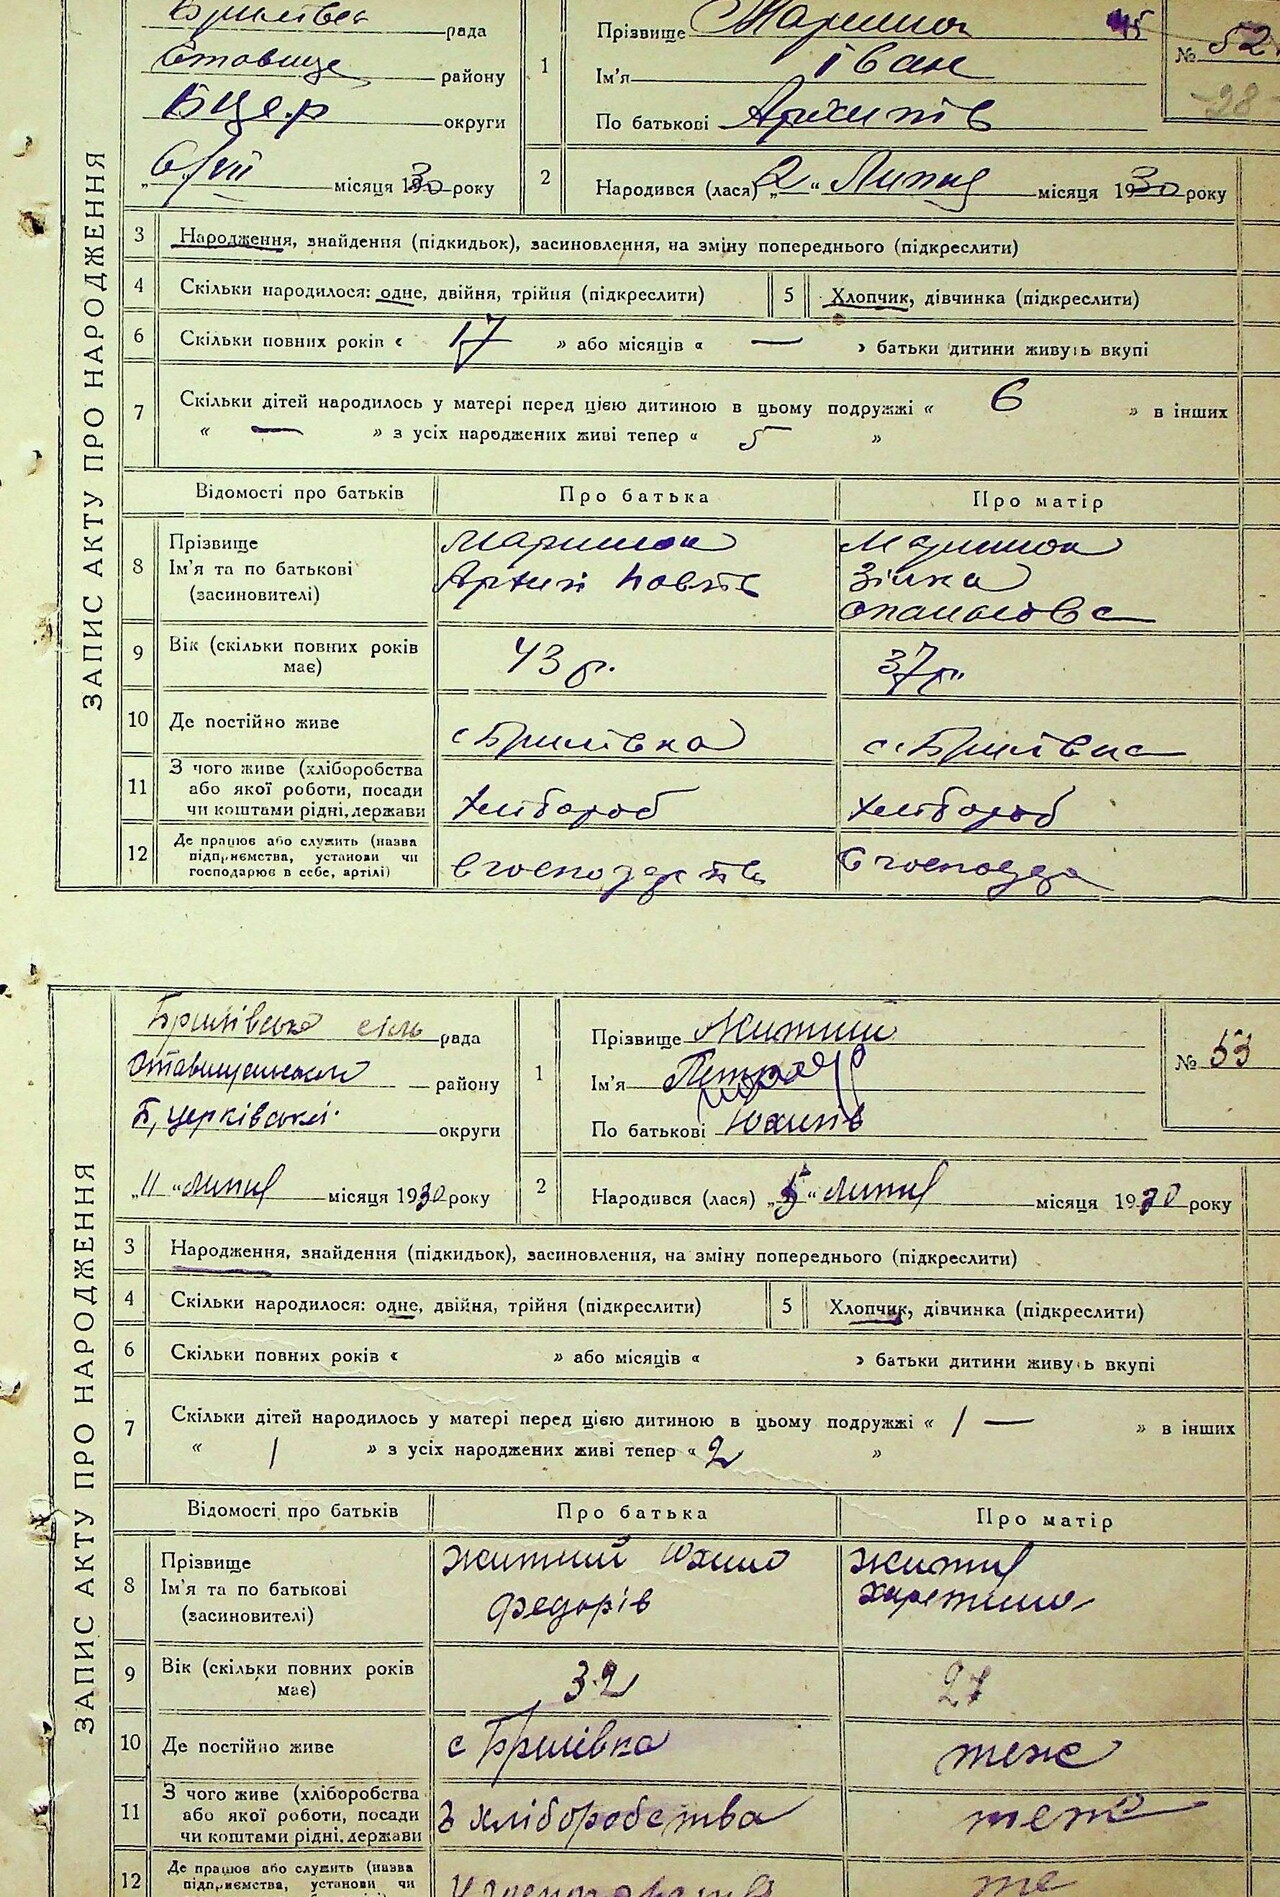 рада
району
Б Цер округи
місяця 1930 року
1
Прізвище
Ім'я Іван
По батькові Архипів
№ 52
28
2
Народився (лася) „2“ Липня місяця 1930 року
ЗАПИС АКТУ ПРО НАРОДЖЕННЯ
3 Народження, знайдення (підкидьок), засиновлення, на зміну попереднього (підкреслити)
4 Скільки народилося: одне, двійня, трійня (підкреслити)
5 Хлопчик, дівчинка (підкреслити)
6 Скільки повних років « 17 » або місяців « — » батьки дитини живуть вкупі
7 Скільки дітей народилось у матері перед цією дитиною в цьому подружжі « 6 » в інших
« — » з усіх народжених живі тепер « 5 »
Відомості про батьків
Про батька
Про матір
8 Прізвище
Ім'я та по батькові
(засиновителі)
9 Вік (скільки повних років
має)
43 р.
37 р.
10 Де постійно живе
с. Брилівка
с. Брилівка
11 З чого живе (хліборобства
або якої роботи, посади
чи коштами рідні, держави
хлібороб
хлібороб
12 Де працює або служить (назва
підприємства, установи чи
господарює в себе, артілі)
ЗАПИС АКТУ ПРО НАРОДЖЕННЯ
Брилівська сіль рада
району
Б, церківської округи
„11“ липня місяця 1930 року
1
Прізвище Житний
Ім'я
По батькові Юхимів
№ 53
2
Народився (лася) „5“ липня місяця 1930 року
3 Народження, знайдення (підкидьок), засиновлення, на зміну попереднього (підкреслити)
4 Скільки народилося: одне, двійня, трійня (підкреслити)
5 Хлопчик, дівчинка (підкреслити)
6 Скільки повних років « » або місяців « » батьки дитини живуть вкупі
7 Скільки дітей народилось у матері перед цією дитиною в цьому подружжі « 1 — » в інших
« 1 » з усіх народжених живі тепер « 2 »
Відомості про батьків
Про батька
Про матір
8 Прізвище
Ім'я та по батькові
(засиновителі)
Житний Юхим
Федорів
Житня
9 Вік (скільки повних років
має)
32
27
10 Де постійно живе
с Брилівка
теже
11 З чого живе (хліборобства
або якої роботи, посади
чи коштами рідні, держави
З хліборобства
теже
12 Де працює або служить (назва
підприємства, установи чи